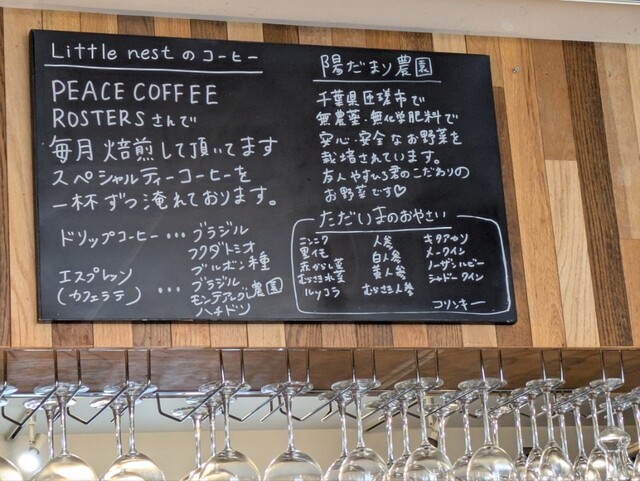 Little nest のコーヒー
PEACE COFFEE
ROSTERSさんで
毎月焙煎して頂いてます
スペシャルティーコーヒーを
一杯ずつ淹れております。
ドリップコーヒー…ブラジル
フクダトシオ
ブルボン種
エスプレッソ
(カフェラテ)
…ブラジル
モンテアレグレ農園
ハチドリ
陽だまり農園
千葉県匝瑳市で
無農薬・無化学肥料で
安心・安全なお野菜を
栽培されています。
友人やすひろ君のこだわりの
お野菜です♡
ただいまのおやさい
ニンニク
里イモ
赤からし菜
むらさき水菜
ルッコラ
人参
白人参
黄人参
むらさき人参
キタアカリ
メークイン
ノーザンルビー
シャドークイン
コリンキー